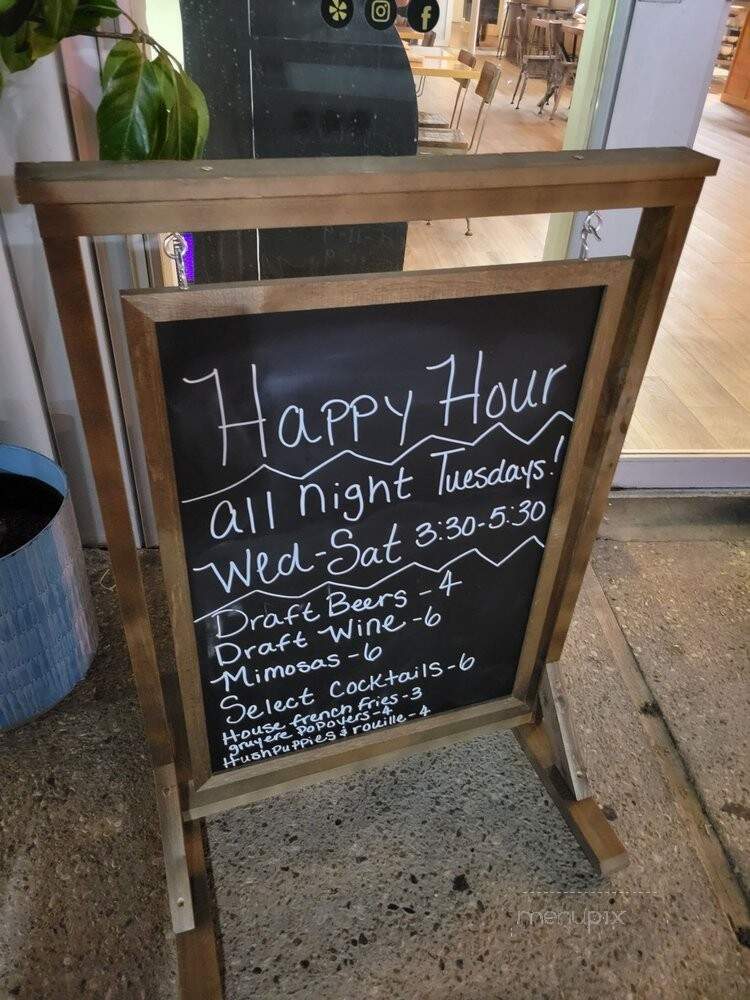 Happy Hour
all night Tuesdays!
Wed-Sat 3:30-5:30
Draft Beers - 4
Draft Wine - 6
Mimosas - 6
Select Cocktails - 6
House french fries - 3
gruyere popovers - 4
Hushpuppies & rouille - 4
menupix